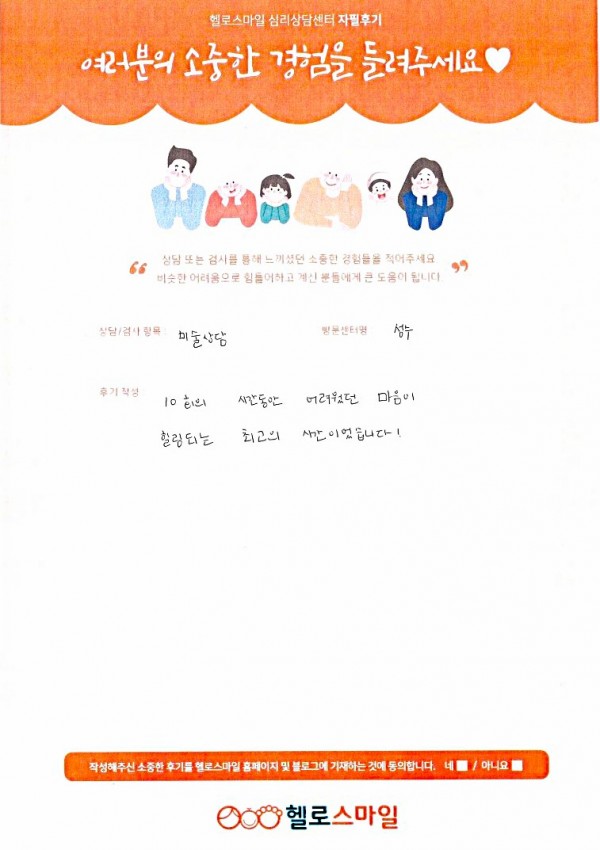 헬로스마일 심리상담센터 자필후기
여러분의 소중한 경험을 들려주세요♥
“ 상담 또는 검사를 통해 느끼셨던 소중한 경험들을 적어주세요
비슷한 어려움으로 힘들어하고 계신 분들에게 큰 도움이 됩니다 ”
상담/검사 항목 미술상담 방문센터명 성수
후기 작성
10회의 시간동안 어려웠던 마음이
힐링되는 최고의 시간이었습니다!
작성해주신 소중한 후기를 헬로스마일 홈페이지 및 블로그에 기재하는 것에 동의합니다. 네 ■ / 아니요 ■
헬로스마일